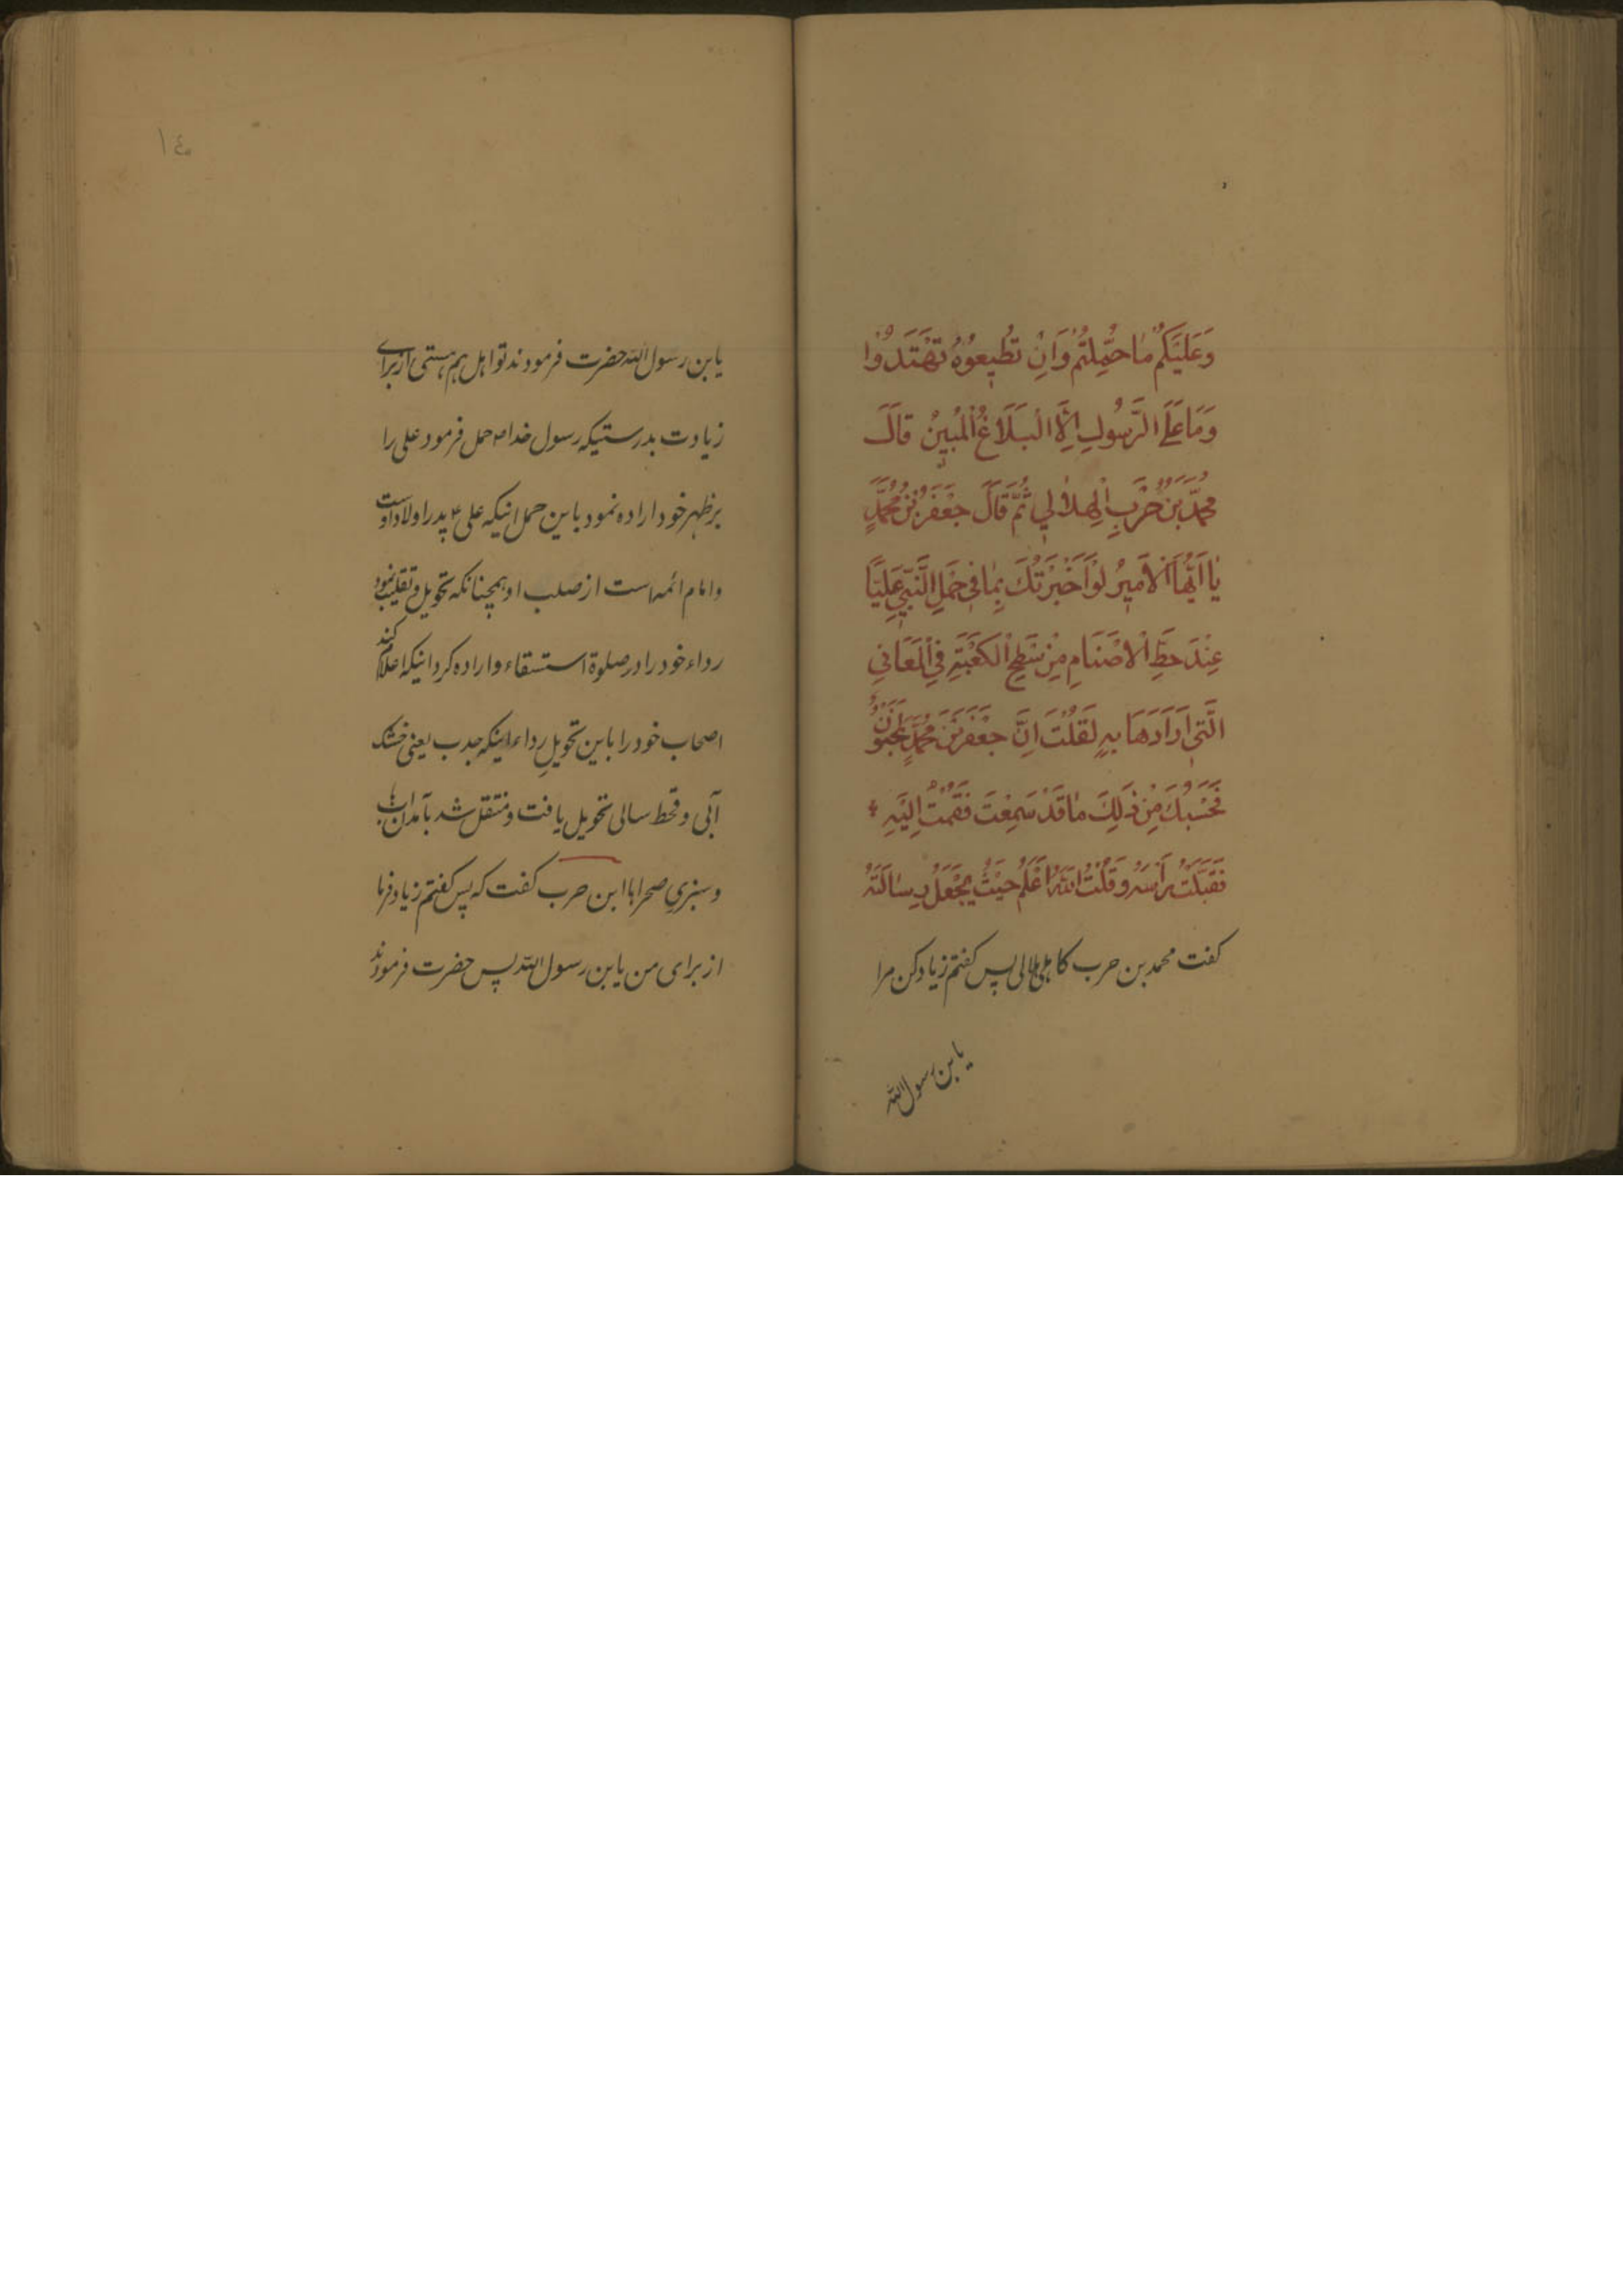 وَعَلَيْكُمْ مٰا حُمِّلْتُمْ وَاِنْ تُطيعُوهُ تَهْتَدُوا
وَمٰا عَلَى الرَّسُولِ اِلَّا الْبَلَاغُ الْمُبينُ قٰالَ
مُحَمَّدُ بْنُ حَرْبِ الْهِلٰالي ثُمَّ قٰالَ جَعْفَرُ بْنُ مُحَمَّدٍ
يٰا اَيُّهَا الْاَميرُ لَوْ اَخْبَرْتُكَ بِمٰا في حَمْلِ النَّبِيِّ عَلِيًّا
عِنْدَ حَطِّ الْاَصْنٰامِ مِنْ سَطْحِ الْكَعْبَةِ فِي الْمَعٰاني
الَّتي اَرٰادَهٰا بِهِ لَقُلْتَ اِنَّ جَعْفَرَ بْنَ مُحَمَّدٍ لَمَجْنُونٌ
فَحَسْبُكَ مِنْ ذٰلِكَ مٰا قَدْ سَمِعْتَ فَقُمْتُ اِلَيْهِ
فَقَبَّلْتُ رَأْسَهُ وَقُلْتُ اَللّٰهُ اَعْلَمُ حَيْثُ يَجْعَلُ رِسٰالَتَهُ
کفت محمد بن حرب کا هلی هلالی پس کفتم زیاد کن مرا
یابن رسول الله
١٤٠
یابن رسول الله حضرت فرمودند تو اهل هم هستی از برای
زیادت بدرستیکه رسول خدا ص حمل فرمود علی را
بر ظهر خود اراده نمود باین حمل اینکه علی ع پدر اولاد اوست
و امام ائمه است از صلب او همچنانکه تحویل و تقلیب نمود
رداء خود را در صلوة استسقاء و اراده کرد اینکه اعلام کند
اصحاب خود را باین تحویلِ رداء اینکه جدب یعنی خشک
آبی و قحط سالی تحویل یافت و منتقل شد بآمدن
و سبزیِ صحراها ابن حرب کفت که پس کفتم زیاد فرما
از برای من یابن رسول الله پس حضرت فرمودند